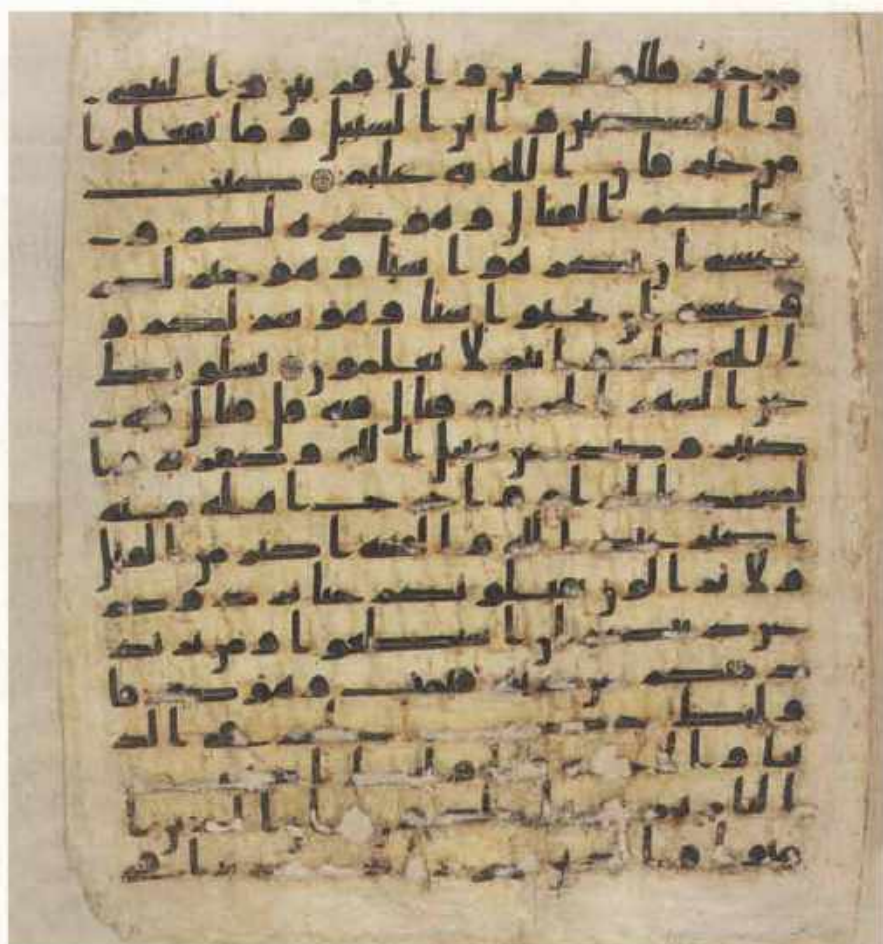 من خير فللولدين والاقربين واليتمى
والمسكين وابن السبيل وما تفعلوا
من خير فان الله به عليم كتب
عليكم القتال وهو كره لكم و
عسى ان تكرهوا شيا وهو خير لكم
وعسى ان تحبوا شيا وهو شر لكم و
الله يعلم وانتم لا تعلمون يسلونك
عن الشهر الحرام قتال فيه قل قتال فيه
كبير وصد عن سبيل الله وكفر به وا
لمسجد الحرام واخراج اهله منه
اكبر عند الله والفتنه اكبر من القتل
ولا يزالون يقتلونكم حتى يردوكم
عن دينكم ان استطعوا ومن يرتد
د منكم عن دينه فيمت وهو كفر فا
وليك حبطت اعملهم في الد
نيا والاخره واوليك اصحب
النار هم فيها خلدون ان الذين ا
منوا والذين